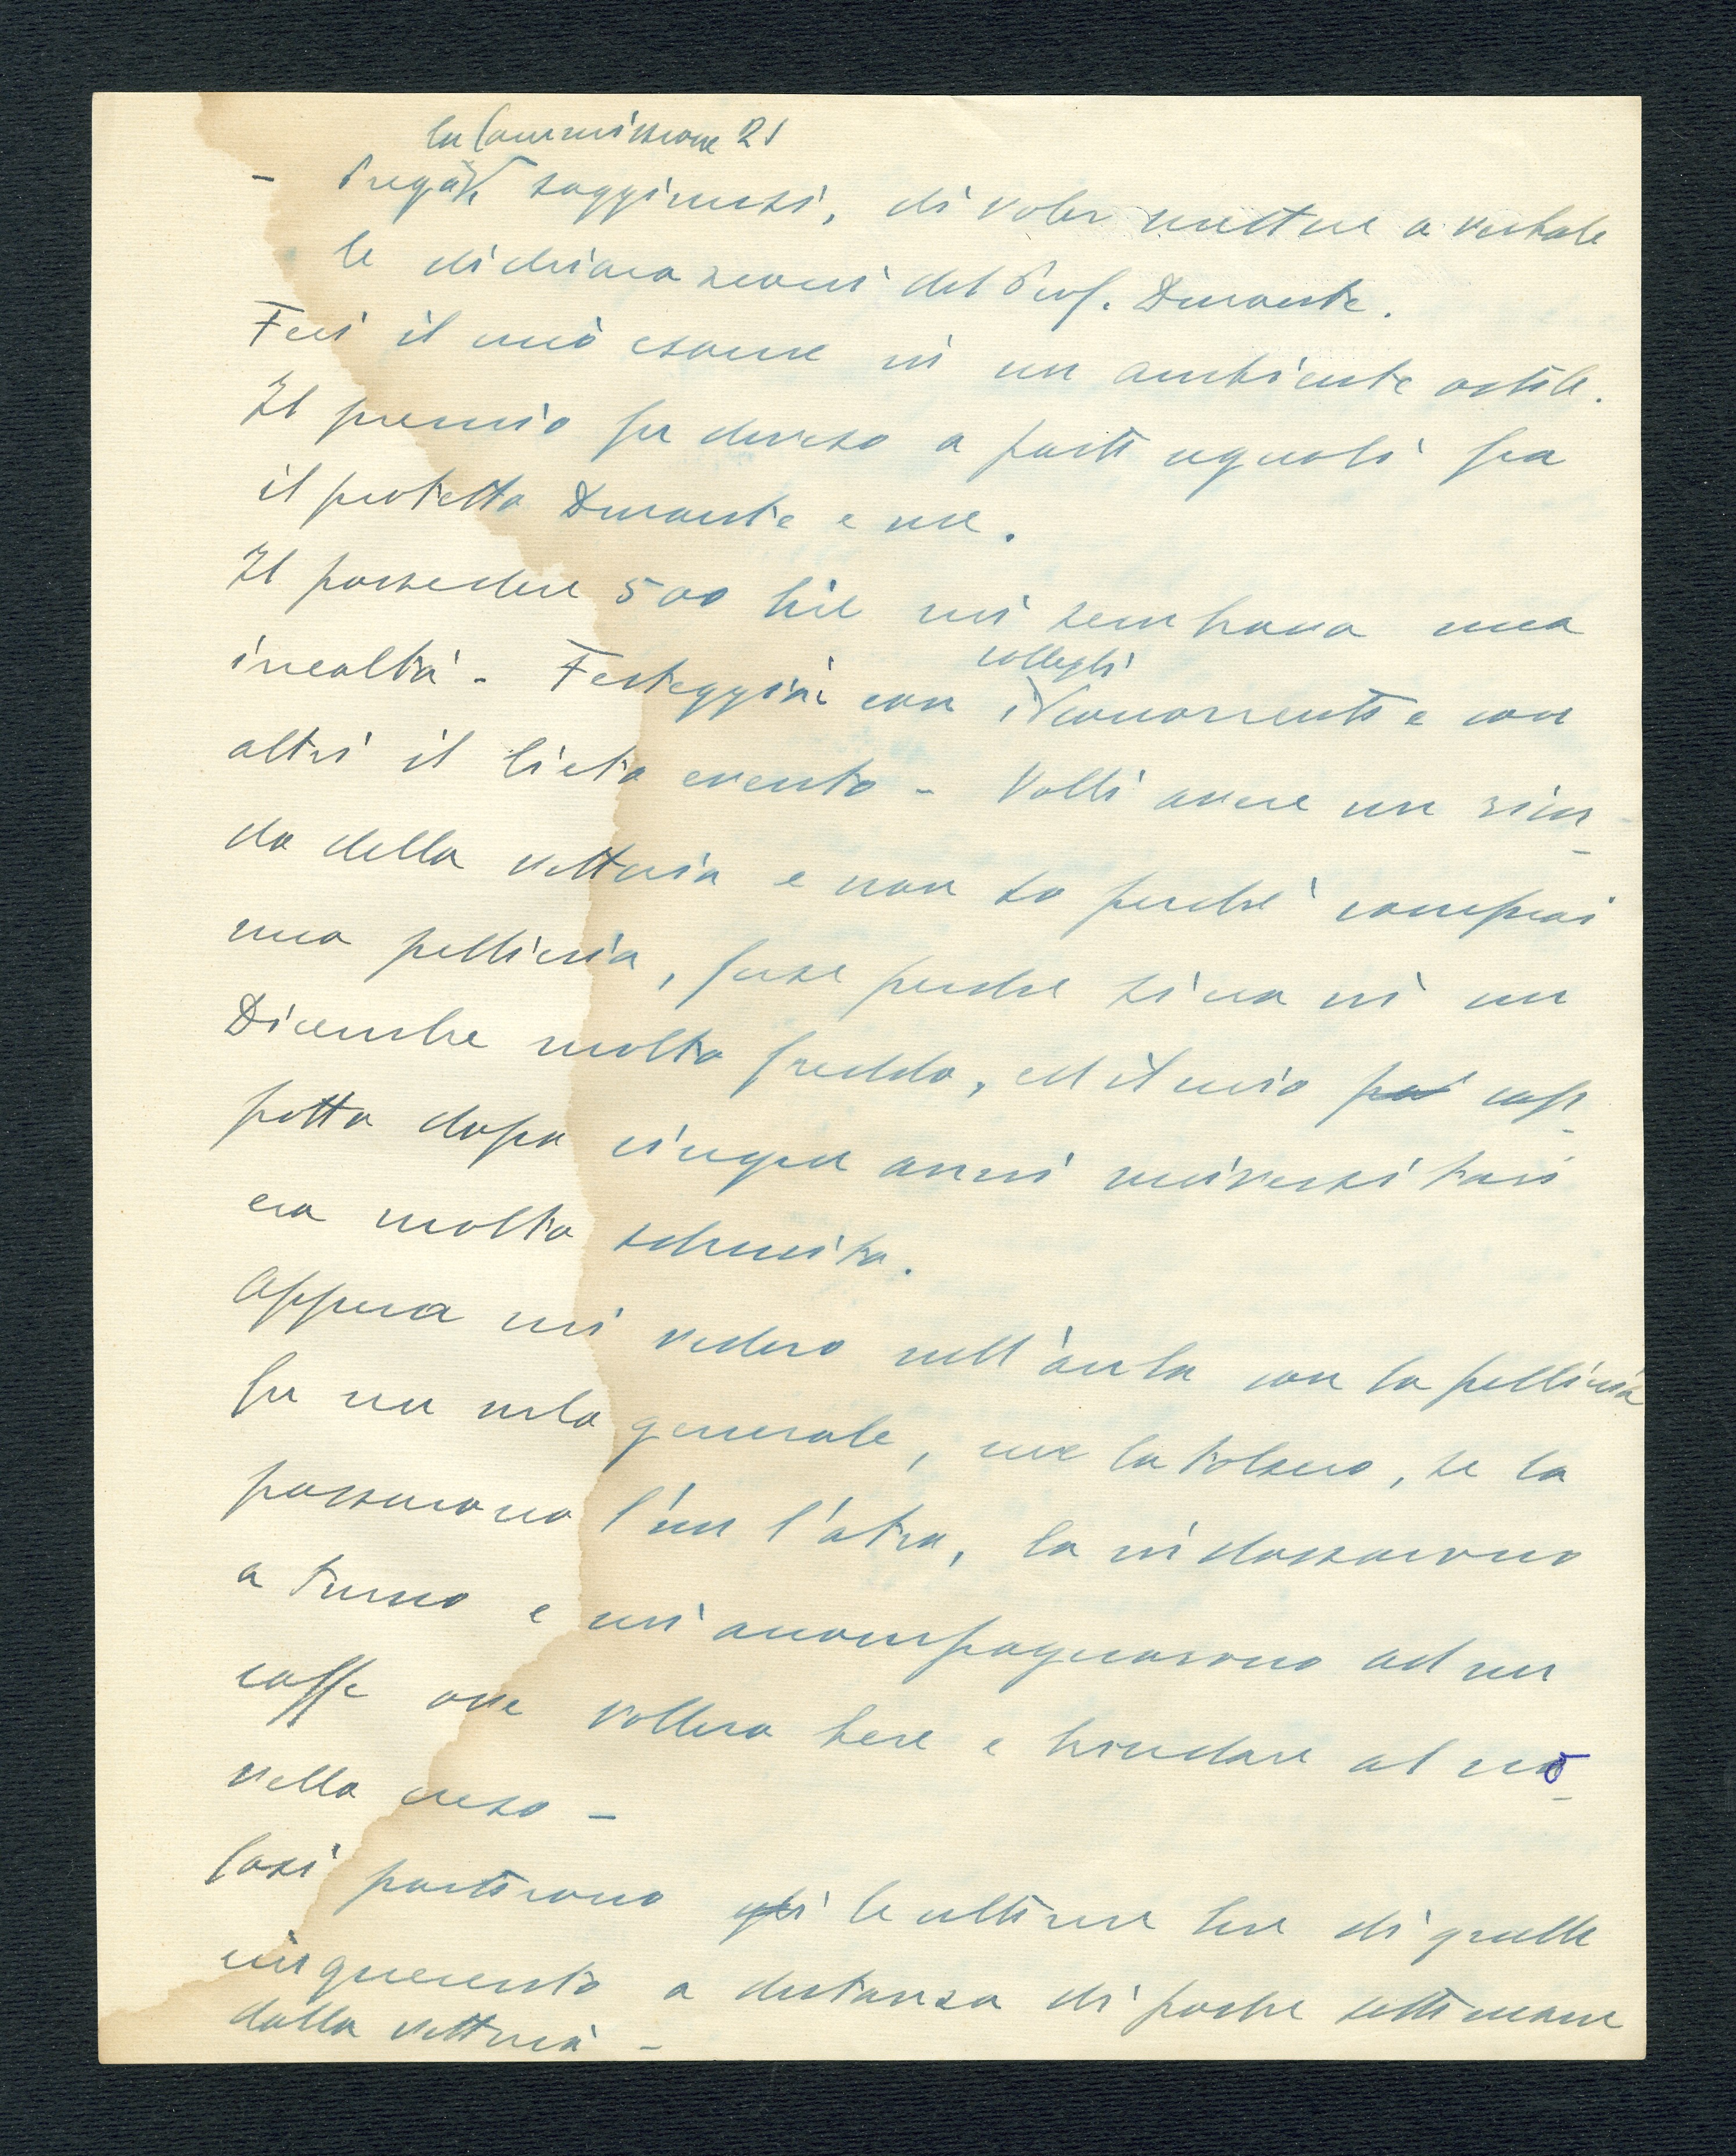 la Commissione 21
- Pregai soggiunsi, di voler mettere a verbale
le dichiarazioni del Prof. Durante.
Feci il mio esame in un ambiente ostile.
Il premio fu diviso a parti uguali fra
il protetto Durante e me.
Il possedere 500 lire mi sembrava una
irrealtà. Festeggiai con i colleghi concorrenti e con
altri il lieto evento - Volli avere un ricor-
do della vittoria e non so perché comprai
una pelliccia, forse perche si era in un
Dicembre molto freddo, ed il mio cap-
potto dopo cinque anni universitari
era molto sdrucito.
Appena mi videro nell'aula con la pelliccia
fu un urlo generale, me la tolsero, se la
passarono l'un l'atro, la indossarono
a turno e mi accompagnarono ad un
caffe ove vollero bere e brindare al no-
vello creso -
Così partirono le ultime lire di quelle
cinquecento a distanza di poche settimane
dalla vittoria -